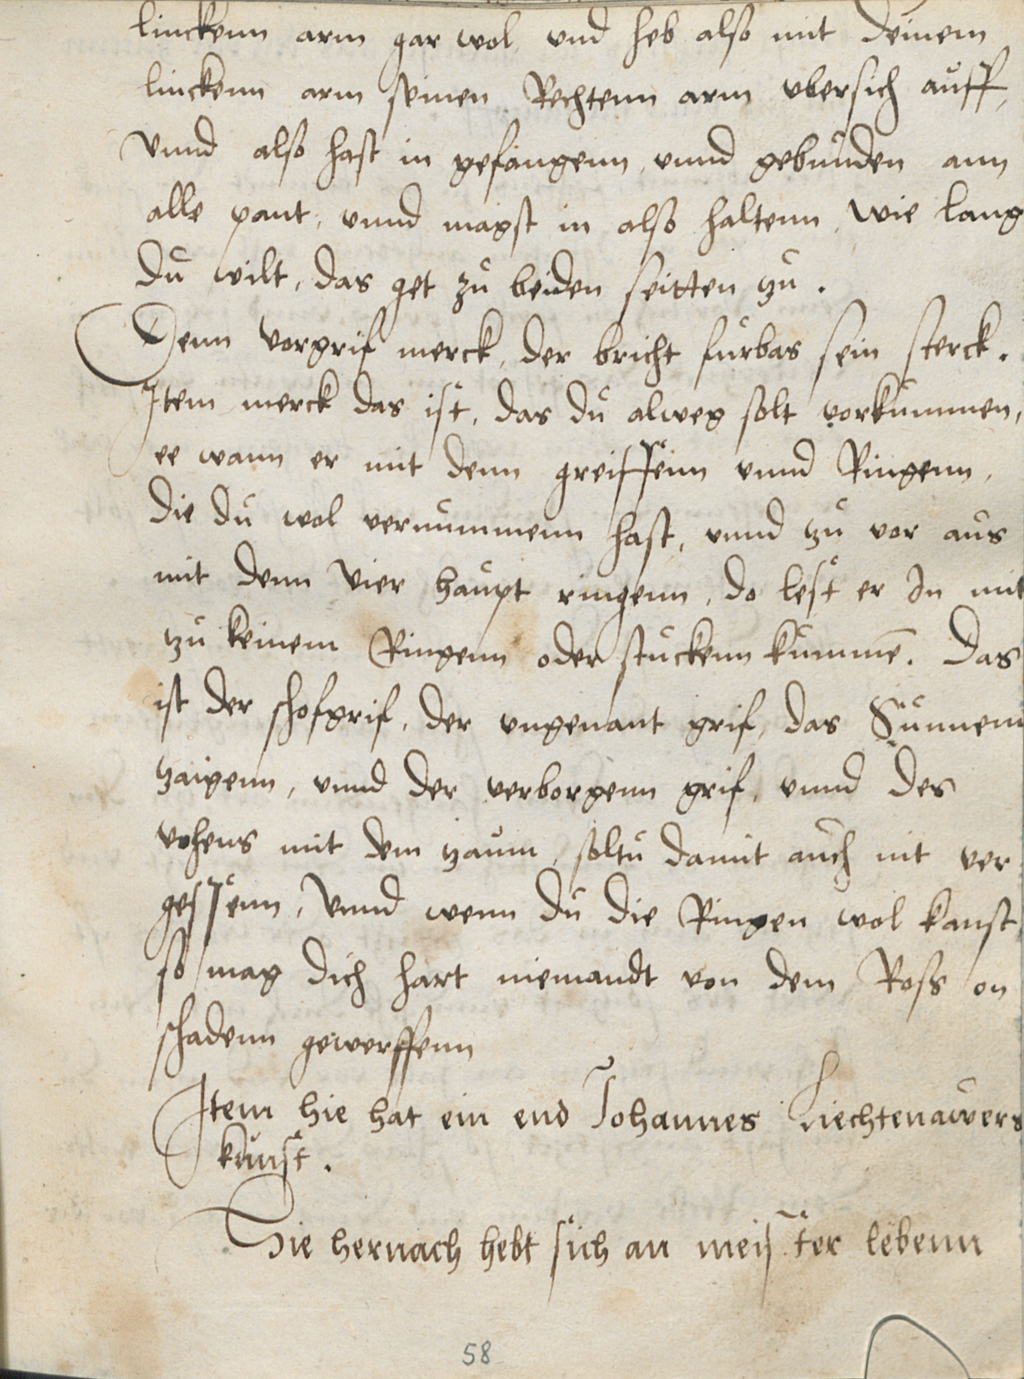 linckenn arm gar wol vnd heb also mit deinem
linckenn arm seinen Rechtenn arm vbersich auff,
Vnnd also hast in gefangenn, vnnd gebunden ann
alle pant, vnnd magst in also haltenn, wie lang
du wilt, das get zu beiden seitten zu.
Denn vorgrif merck, der bricht furbas sein sterck.
Item merck das ist, das du alweg solt vorkummen,
ee wann er mit denn greiffenn vnnd Ringenn,
die du wol vernummenn hast, vnnd zu vor aus
mit denn vier haupt ringenn, do lest er In nit
zu keinem Ringenn oder stuckenn kummē. Das
ist der schofgrif, der vngenant grif, das Sunnenn
zaigenn, vnnd der verborgenn grif, vnnd des
vohens mit dem zaum, soltu damit auch nit ver
gessenn, Vnnd wenn du die Ringen wol kanst
so mag dich hart niemandt von dem Ross on
schadenn gewerffenn
Item hie hat ein end Johannes Liechtenawers
kunst.
Hie hernach hebt sich an meister lebenn
58